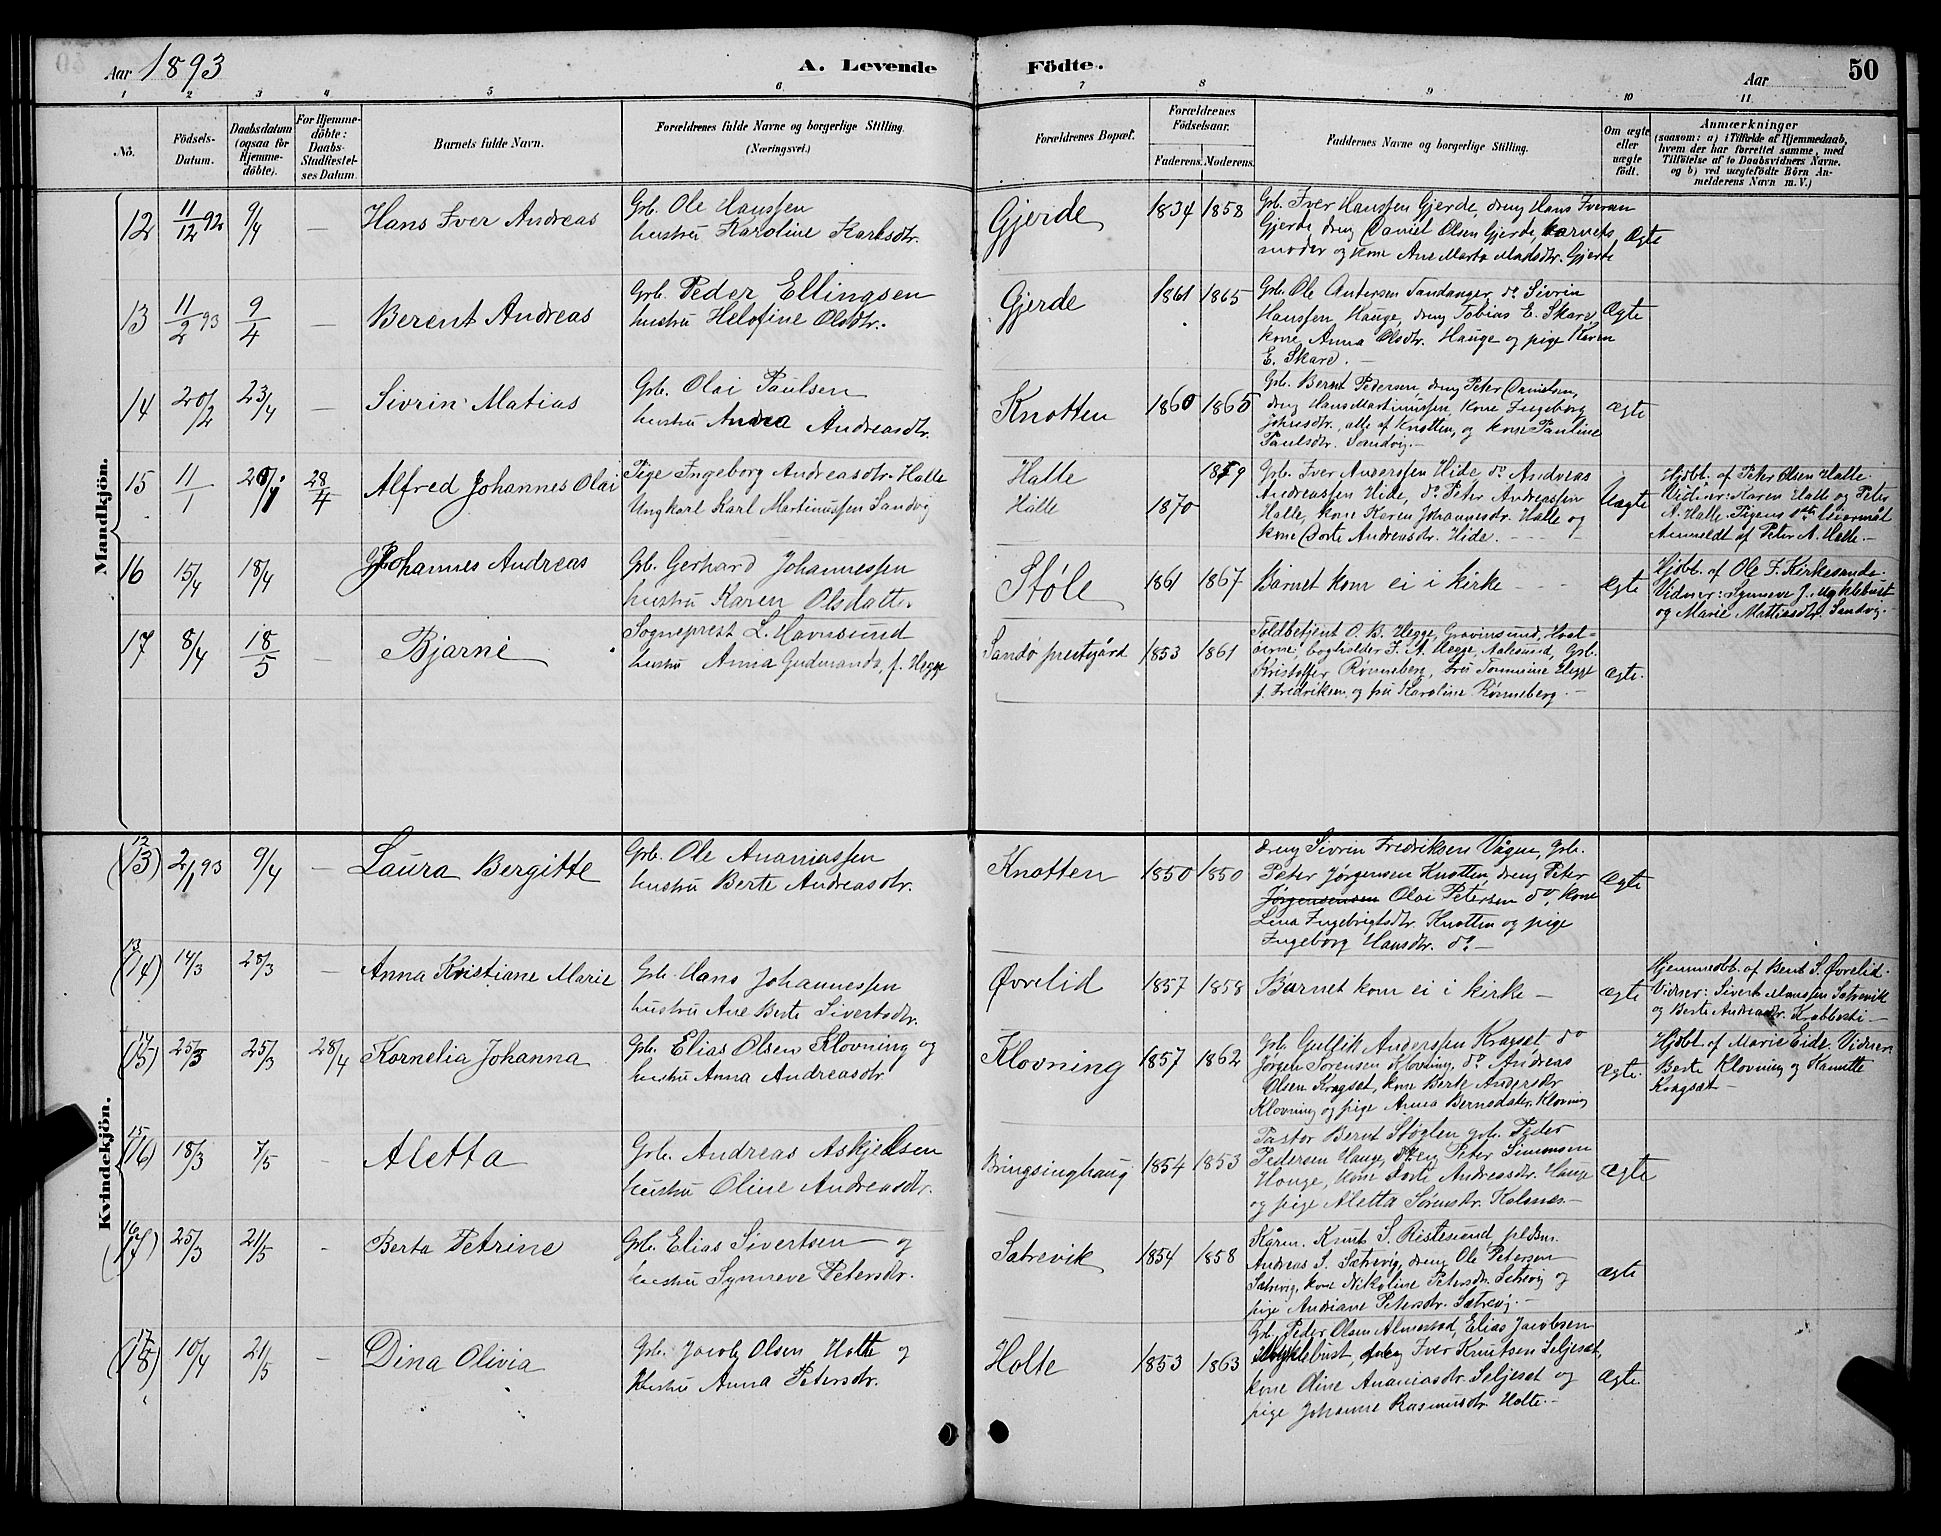 Aar 1893
A. Levende Födte.
Aar
50
1 2 3 4 5 6 7 8 9 10 11.
No.
Födsels-Datum.
Daabsdatum (ogsaa for Hjemme-döbte).
For Hjemme-döbte: Daabs-Stadfæstel-ses Datum.
Barnets fulde Navn.
Forældrenes fulde Navne og borgerlige Stilling.
(Næringsvei.)
Forældrenes Bopæl.
Forældrenes Födselsaar.
Faderens. Moderens.
Faddernes Navne og borgerlige Stilling.
Om ægte eller uægte födt.
Anmærkninger
(saasom: a) i Tilfælde af Hjemmedaab,
hvem der har forrettet samme, med
Tilföielse af to Daabsvidners Navne.
og b) ved uægtefödte Börn An-
melderens Navn m. V.)
Mandkjön.
12 11/12 92 9/4 — Hans Iver Andreas
Grb. Ole Hanssen
hustru Karoline Karlsdtr.
Gjerde 1834 1858
Grb. Iver Hanssen Gjerde, dreng Hans Iversen
Gjerde, dreng Daniel Olsen Gjerde, barnets
moder og kone Ane Marta Madsdtr. Gjerde
Ægte
13 11/2 93 9/4 — Berent Andreas
Grb. Peder Ellingsen
hustru Helofine Olsdtr.
Gjerde 1861 1865
Grb. Ole Andersen Sandanger, do Sivrin
Hanssen Hauge, dreng Tobias E. Skare,
kone Anna Olsdtr. Hauge og pige Karen
E. Skare. —
Ægte
14 20/2 23/4 — Sivrin Matias
Grb. Olai Paulsen
hustru Andrea Andreasdtr.
Knotten 1860 1865
Grb. Bernt Pedersen, dreng Peter Danielsen,
dreng Hans Martinussen, kone Ingeborg
Johnsdtr., alle af Knotten, og kone Pauline
Paulsdtr. Sandvig. —
Ægte
15 11/1 28/4 Alfred Johannes Olai
Pige Ingeborg Andreasdtr. Halle
Ungkarl Karl Martinussen Sandvig
Halle
Halle 1870
Grb. Iver Anderssen Hide, do Andreas
Andreassen Hide, do Peter Andreassen
Halle, kone Karen Johannesdtr. Halle og
kone Dorte Andreasdtr. Hide. —
Uægte
Hjdbt. af Peter Olsen Halle
Vidner: Karen Halle og Peter
A. Halle. Pigens 1ste leiermål
Anmeldt af Peter A. Halle. —
16 15/4 18/4 Johannes Andreas
Grb. Gerhard Johannessen
hustru Karen Olsdatter
Støle 1861 1867 Barnet kom ei i kirke — Ægte
Hjdbt. af Ole F. Kirkesunde.
Vidner: Synneve J. Myklebust
og Marie Mattiasdtr. Sandvig. —
17 8/4 18/5 — Bjarne
Sogneprest L. Havnsund
hustru Anna Gudmanda, f. Hegge
Sandø prestegård 1853 1861
Toldbetjent O. B. Hegge, Gravinsund, Hval-
øerne, bogholder J. A. Hegge, Aalesund, Grb.
Kristoffer Rønneberg, fru Tomine Hegge
f. Fredriksen, og fru Karoline Rønneberg. —
Ægte.
Kvindekjön.
12
(13) 2/1 93 9/4 — Laura Bergitte
Grb. Ole Ananiassen
hustru Berte Andreasdtr.
Knotten 1850 1850
dreng Sivrin Fredriksen Vågne, Grb.
Peter Jørgensen Knotten, dreng Peter
Jørgensensen Olai Petersen do, kone
Lina Ingebrigtsdtr. Knotten og pige
Ingeborg Hansdtr. do —
Ægte
13
(14) 14/3 28/3 — Anna Kristiane Marie
Grb. Hans Johannessen
hustru Ane Berte Sivertsdtr.
Øvrelid 1857 1858 Barnet kom ei i kirke — Ægte
Hjemmedbt. af Bent S. Øvrelid.
Vidner: Sivert Monssen Sætrevik
og Berte Andreasdtr. Krabbesti —
14
(15) 25/3 25/3 28/4 Kornelia Johanna
Grb. Elias Olsen Klovning og
hustru Anna Andreasdtr.
Klovning 1857 1862
Grb. Gullik Anderssen Kragset, do
Jørgen Sørensen Klovning, do Andreas
Olsen Kragset, kone Berte Andersdtr.
Klovning og pige Anna Berntsdatter Klovning
Ægte.
Hjdbt. af Marie Eide. Vidner:
Berte Klovning og Hanette
Kragset —
15
(16) 18/3 7/5 — Aletta
Grb. Andreas Askjelsen
hustru Oline Andreasdtr.
Bringsinghaug 1854 1853
Pastor Bernt Støylen, grb. Peder
Pedersen Hauge, dreng Peter Simonsen
Hauge, kone Dorte Andreasdtr. Hauge
og pige Aletta Sørensdtr. Kalsnes —
Ægte
16
(17) 25/3 21/5 — Berta Petrine
Grb. Elias Sivertsen og
hustru Synneve Petersdtr.
Sætrevik 1854 1858
Kårm. Knut S. Ristesund,
Andreas S. Sætrevig, dreng Ole Petersen
Sætrevig, kone Nikoline Petersdtr. Sætrevig og
pige Andriane Petersdtr. Sætrevig. —
Ægte
17
(18) 10/4 21/5 — Dina Olivia
Grb. Jacob Olsen Holte og
hustru Anna Petersdtr.
Holte 1853 1863
Grb. Peder Olsen Almestad, Elias Jacobsen
Myklebust, dreng Iver Knutsen Seljeset,
kone Oline Ananiasdtr. Seljeset og
pige Johanne Rasmusdtr. Holte. —
Ægte